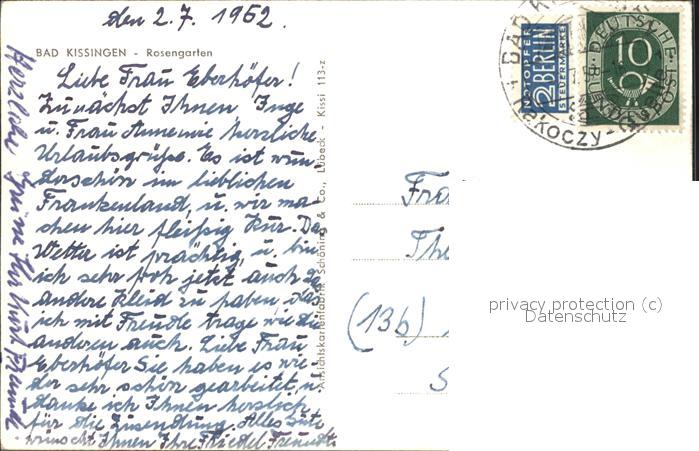 den 2. 7. 1962.
BAD KISSINGEN - Rosengarten
Liebe Frau Eberhöfer!
Zunächst Ihnen, Inge
u. Frau Annemie herzliche
Urlaubsgrüße. Es ist wun-
derschön im lieblichen
Frankenland, u. wir ma-
chen hier fleißig Kur. Das
Wetter ist prächtig, u. bin
ich sehr froh jetzt auch das
andere Kleid zu haben, das
ich mit Freude trage wie die
anderen auch. Liebe Frau
Eberhöfer Sie haben es wie-
der sehr schön gearbeitet, u.
danke ich Ihnen herzlich
für die Zusendung. Alles Gute
wünscht Ihnen Ihre Friedel Freund
Herzliche Grüße Ihr Kurt Freund
Ansichtskartenfabrik Schöning & Co., Lübeck - Kissi 113-z
NOTOPFER
2 BERLIN
STEUERMARKE
DEUTSCHE
10
BUNDESPOST
BAD K
Fra
The
(13b)
S
privacy protection (c)
Datenschutz